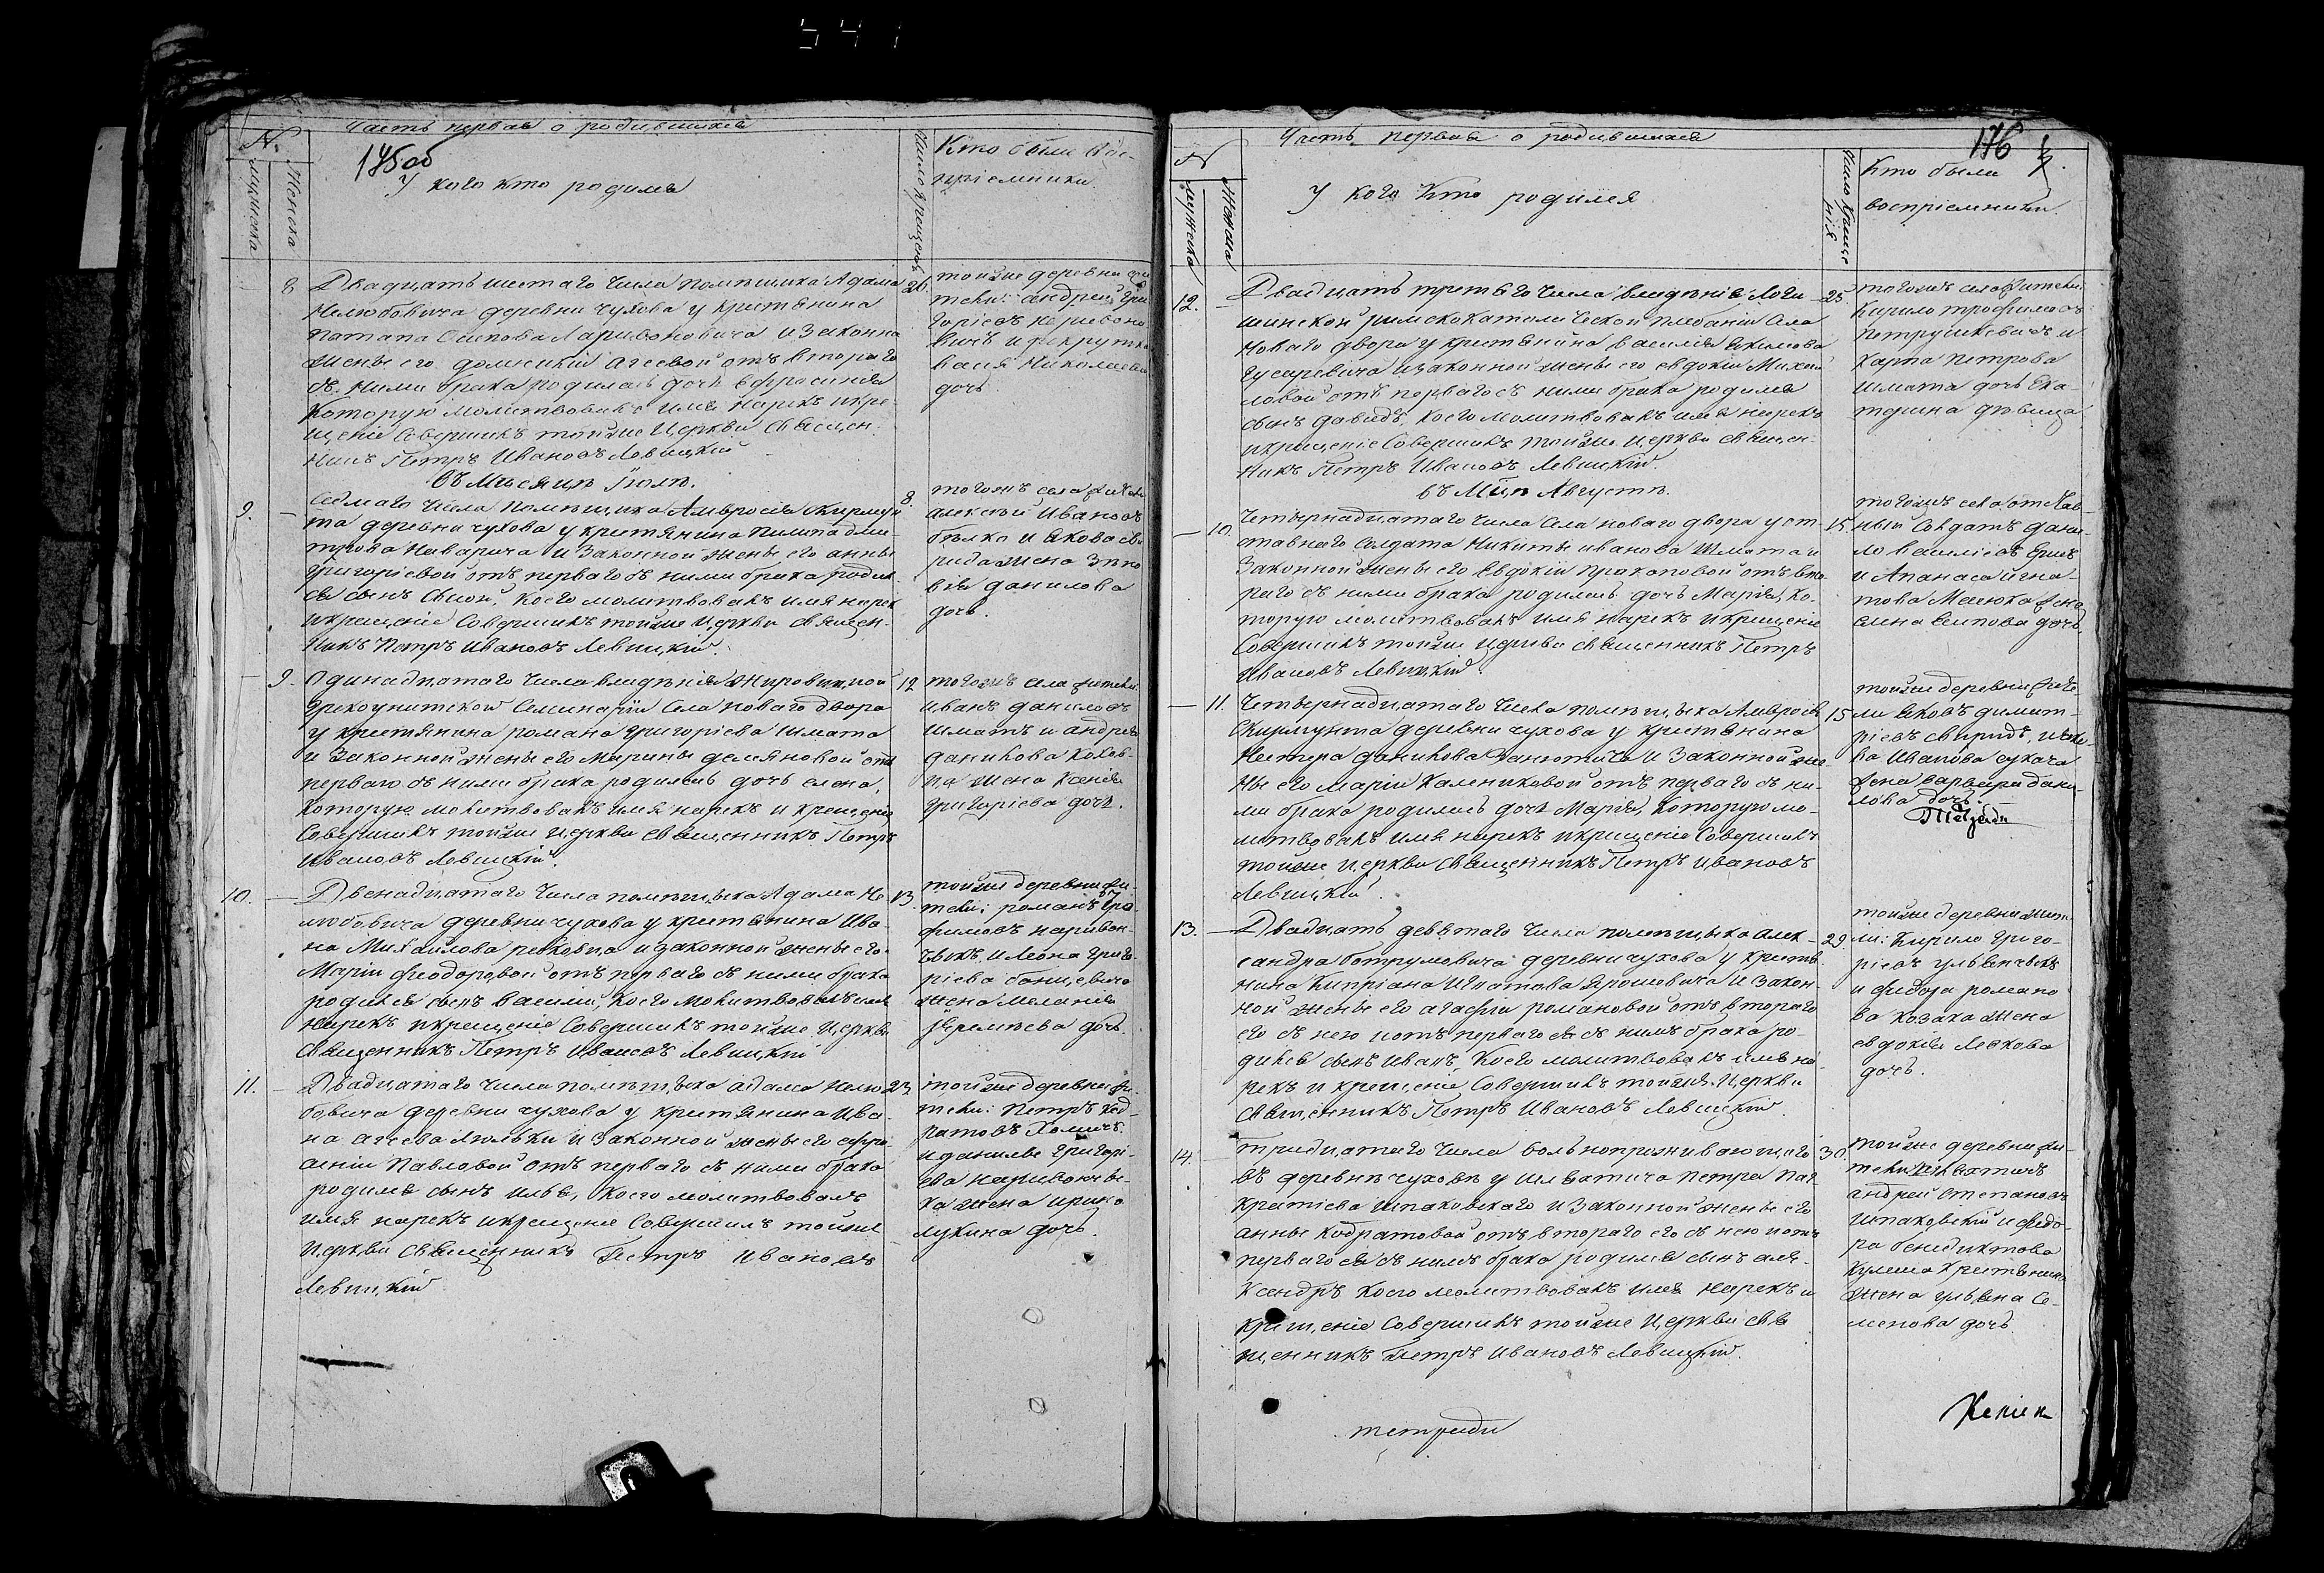 Часть первая о родившихся
№
мужеска
Женска
175об
У кого кто родился
Число крещенія
Кто были вос-
пріемники
8 Двадцать шестаго Числа помѣщика Адама
Нелюбовича деревни чухова у крестянина
Патапа Осипова Ларивоновича и Законна
жены его домникіи агеевой отъ втораго
съ ними брака родилась дочь ефросинія
Которую молитвовавъ имя нарекъ икре-
щеніе Совершилъ тойже Церкви Священ-
никъ Петръ Ивановъ Левицкій
26
тойже деревни жи
тели: андрей Гри
горіевъ
вичъ и
васія Николаева
дочь
Въ Мѣсяцѣ Іюлѣ.
9. — Седмаго Числа Помѣщика Амвросія Скирмун
та деревни чухова у крестянина Пилипа дми-
трова Наварича и Законной жены его анны
Григоріевой отъ перваго съ ними брака родил-
ся сынъ Сысой, Коего молитвовалъ имя нарек
икрещеніе Совершилъ тойже Церкви священ-
никъ Петръ Ивановъ Левицкій.
8.
тогожъ села жители
алексѣй Ивановъ
бѣлко и якова сви
рида жена Зѣно
вія данилова
дочь.
— 9. Одинадцатаго Числа владѣнія Жировицкой
Грекоунитской Семинаріи Села новаго двора
у крестянина романа Григоріева Шмата
и Законной жены его Марины демяновой отъ
перваго съ ними брака родилась дочь елена,
которую молитвовалъ имя нарекъ и крещеніе
Совершилъ тойже церкви священникъ Петръ
Ивановъ Левицкій.
12
тогожъ села жители
иванъ даниловъ
шматъ и андрея
данилова Колов-
на жена Ксенія
григоріева дочь.
10. — Двенадцатаго Числа помѣщыка Адама Не
любовича деревни чухова у крестянина Ива-
на Михаилова ревковца и законной жены его
Маріи феодоровой отъ перваго съ ними брака
родился сынъ василій, Коего молитвовалъ имя
нарекъ икрещеніе Совершилъ тойже Церкви
Священникъ Петръ Ивановъ Левицкій
13.
тойже деревни жи-
тели: романъ тро-
фимовъ наривон-
чыкъ, и Леона Григо
ріева банцевича
жена Меланія
Яремѣева дочь.
11. — Двадцатаго Числа помѣщыка адама Нелю
бовича деревни чухова у крестянина Ива-
на агеева Люльки и Законной жены его ефро-
сеніи Павловой отъ перваго съ ними брака
родился сынъ илья, Коего молитвовалъ
имя нарекъ икрещеніе Совершилъ тойже
Церкви священникъ Петръ Ивановъ
Левицкій
23
тойже деревни жи-
тели: Петръ Код-
ратовъ Хомичъ.
и данилы Григорі-
ева наривончы-
ка жена ирина
лукина дочь.
Часть первая о родившихся
176
№
мужеска
Женска
У кого Кто родился
Число Креще
нія
Кто были
воспріемники
12. — Двадцать третьего Числа владѣнія Логи
шинской римскокатолической плебаніи Села
Новаго двора у крестянина василія Якимова
Гусаревича изаконной жены его евдокіи Михай
ловой отъ перваго съ ними брака родился
сынъ давидъ, коего молитвовалъ имя нарекъ
икрещеніе Совершилъ тойже церкви священ-
никъ Петръ Ивановъ Левицкій.
25.
тогожъ села жители
Кирило трофимовъ
Петрушкевичъ и
Карпа Петрова
шмата дочь Ека-
терина дѣвица
въ Мцѣ Августѣ.
— 10. Четырнадцатаго Числа Села новаго двора у от
ставнаго Солдата Никиты иванова Шмата и
Законной жены его Евдокіи Пракоповой отъ вто
раго съ ними брака родилась дочь Марія, Ко-
торую молитвовалъ имя нарекъ икрещеніе
Совершилъ тойже церкви священникъ Петръ
Ивановъ Левицкій.
15.
тогожъ села отстав-
ный Солдатъ дани-
ло василіевъ
и Апанаса игна-
това Масюка жена
елена осипова дочь.
— 11. Четырнадцатаго Числа помѣщыка Амвросія
Скирмунта деревни чухова у крестянина
Нестера данилова и Законной же-
ны его Маріи Калениковой отъ перваго съ ни-
ми брака родилась дочь Марія, которую мо-
литвовалъ имя нарекъ икрещеніе Совершилъ
тойже церкви Священникъ Петръ Ивановъ
Левицкій.
15
тойже деревни жите
ли яковъ димит-
ріевъ свиридъ, и яко-
ва Иванова сукача
жена варвара дани-
лова дочь.
13. — Двадцать девятаго Числа помѣщыка Алек-
сандра ботрумовича деревни чухова у крестя
нина Кипріана Игнатова Ярошевича и закон
ной жены его агафіи романовой отъ втораго
его съ нею иотъ перваго ея съ нимъ брака ро-
дился сынъ иванъ, Коего молитвовалъ имя на-
рекъ и крещеніе Совершилъ тойже Церкви
Священникъ Петръ Ивановъ Левицкій.
29.
тойже деревни жите
ли: Кирило григо-
ріевъ ульянчыкъ
и фидора романо
ва козака жена
евдокія Левкова
дочь.
14. — тридцатаго Числа вольнопроживающаго
въ деревнѣ чуховѣ у шляхтича петра Пан
кратіева шпаковскаго и законной жены его
анны кодратовой отъ втораго его съ нею иотъ
перваго ея съ нимъ брака родился сынъ але-
ксандръ коего молитвовалъ имя нарекъ и
крещеніе Совершилъ тойже Церкви свя
щенникъ Петръ Ивановъ Левицкій.
30.
тойже деревни жи-
тели шляхтичъ
андрей Степановъ
шпаковскій и федо-
ра бенедиктова
Кулеша Крестянина
жена ульяна Се-
менова дочь.
тетради